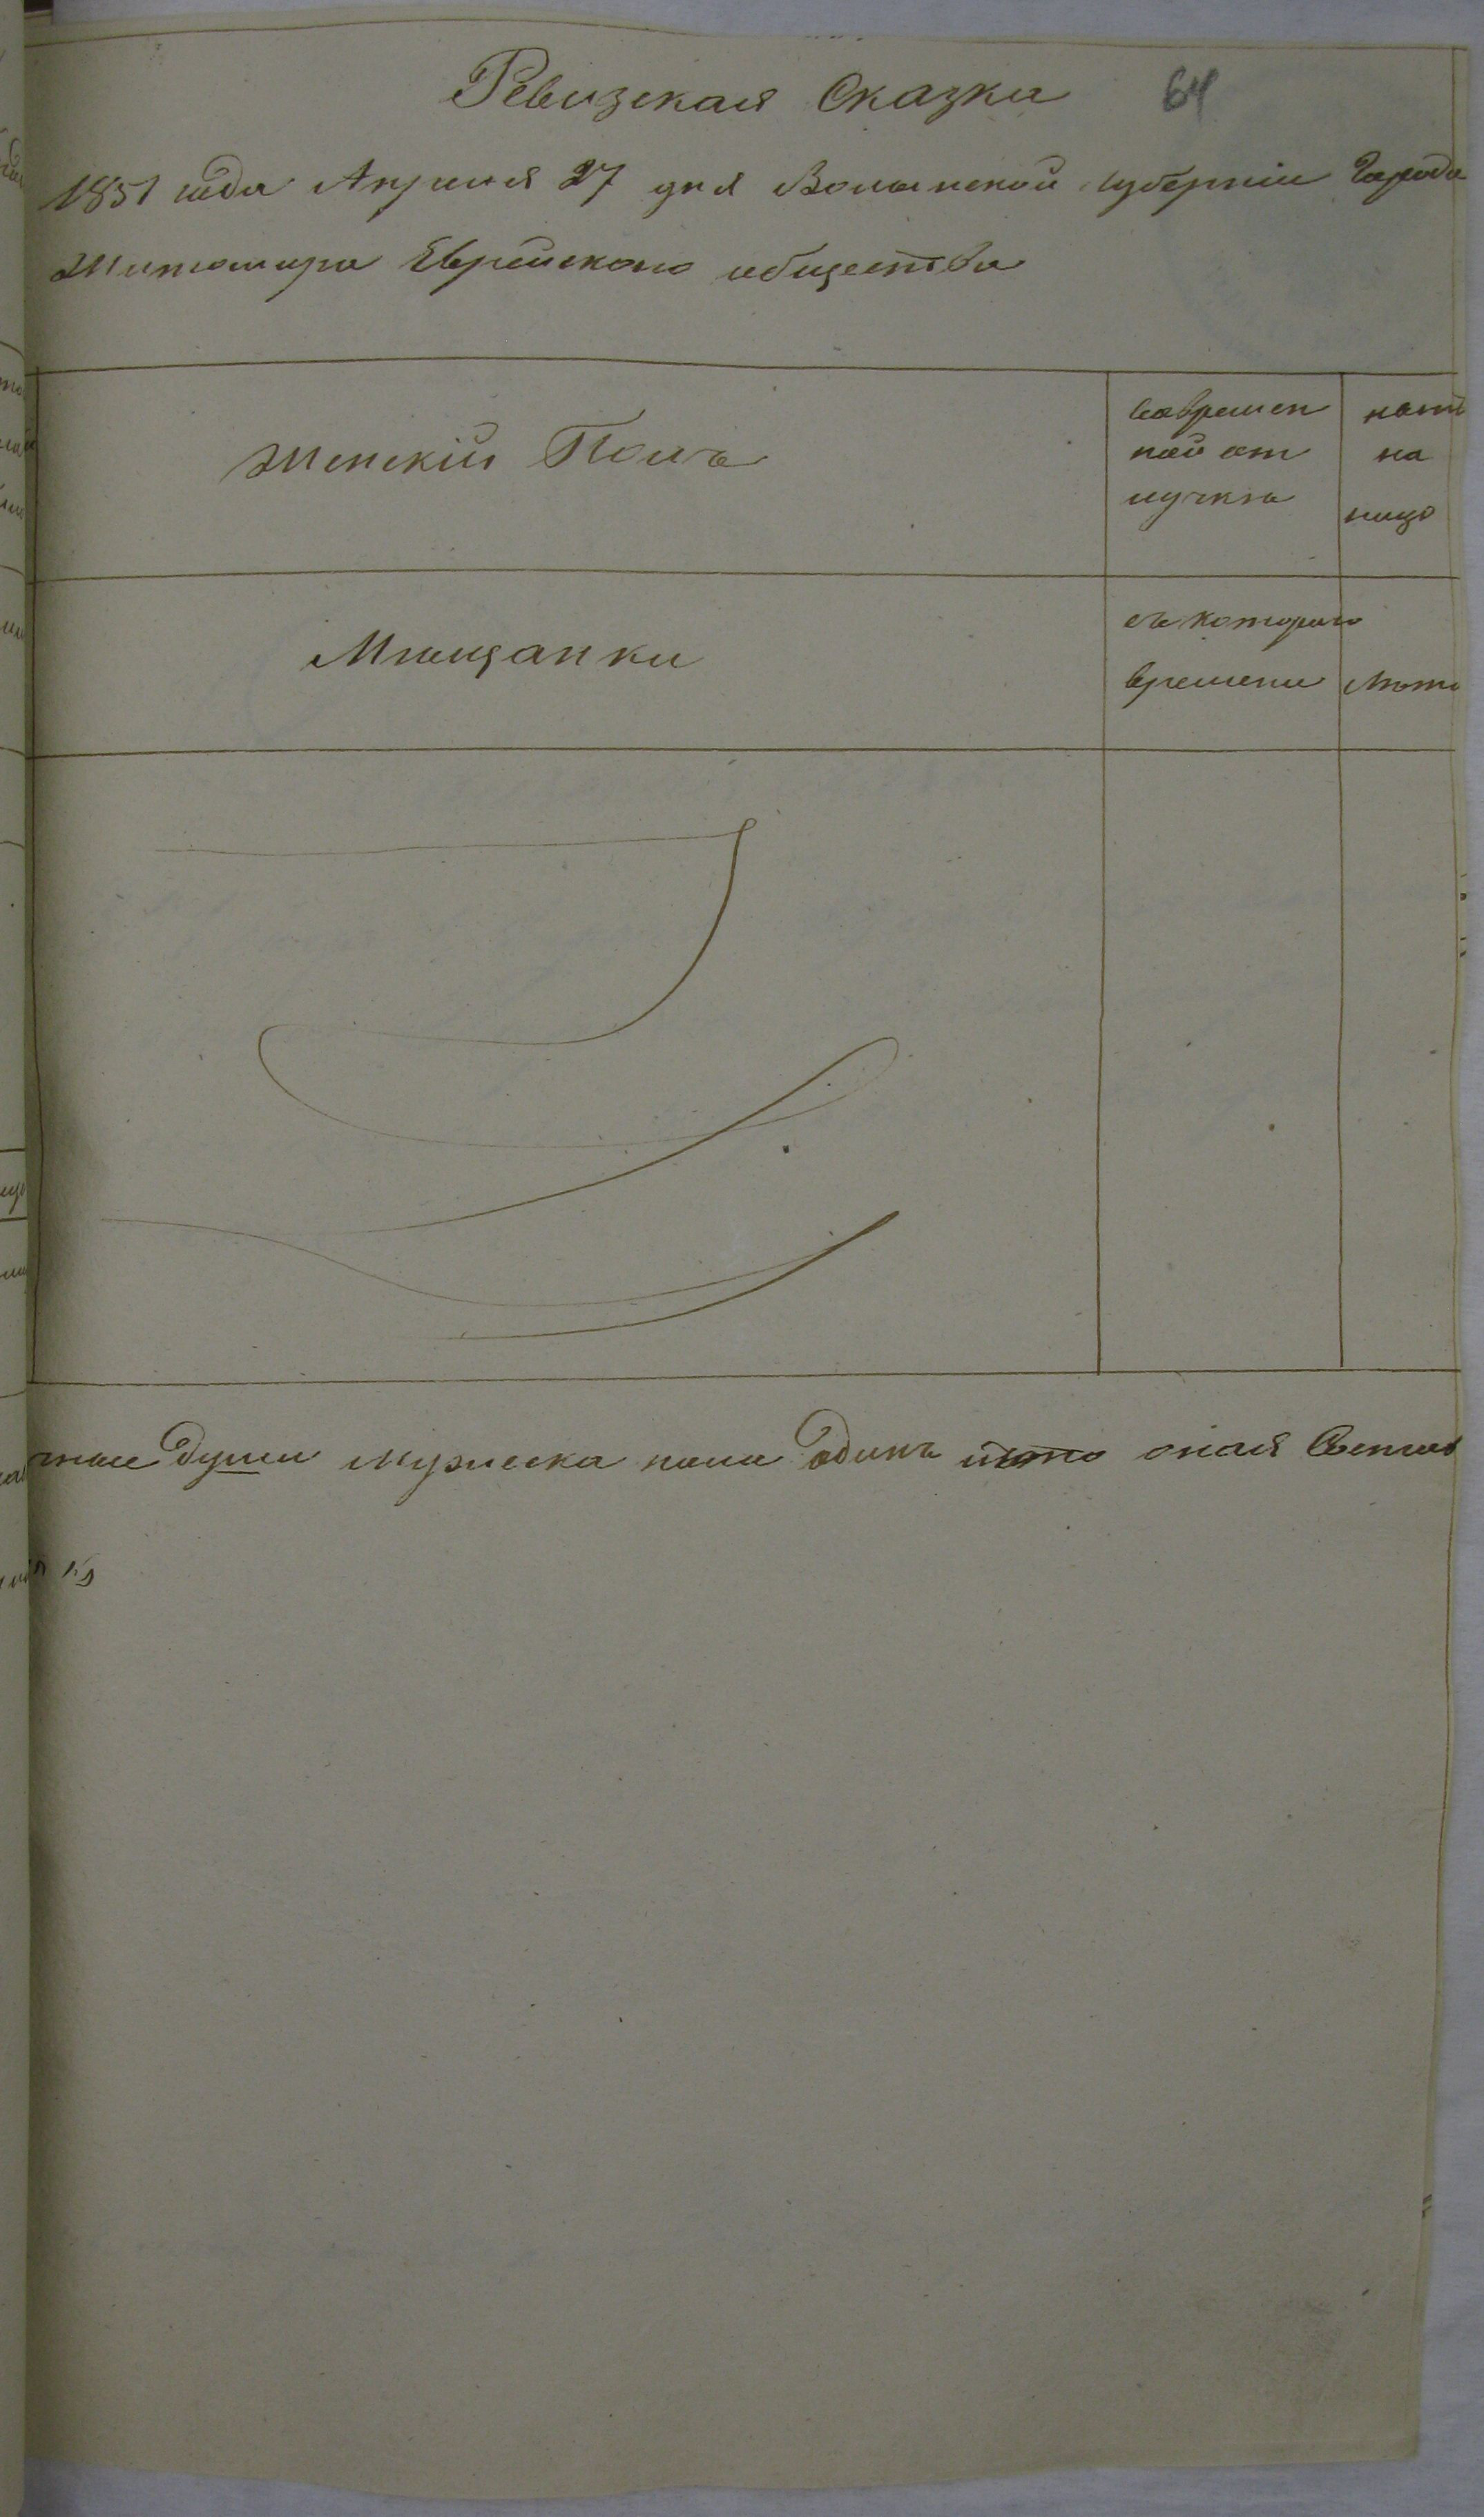 Ревизская Сказка 64
1851 года Апреля 27 дня Волынской губерніи Города
Житомира Еврейского общества
Женскій Полъ
вовремен
ной от
лучкѣ
на
лицо
Мѣщанки
съ котораго
времени
Лѣта
души мужеска пола одинъ что оная